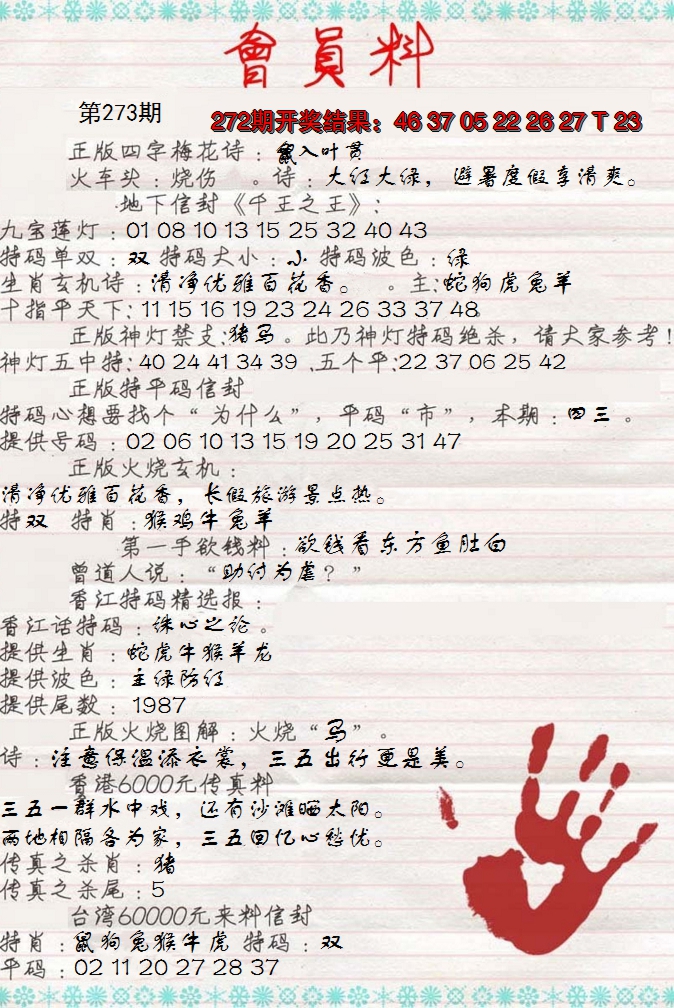 會員料
第273期
272期开奖结果：46 37 05 22 26 27 T 23
正版四字梅花诗：鼠入叶贯
火车头：烧伤 。诗：大红大绿，避暑度假享清爽。
地下信封《千王之王》：
九宝莲灯：01 08 10 13 15 25 32 40 43
特码单双：双 特码大小：小 特码波色：绿
生肖玄机诗：清净优雅百花香。 。主：蛇狗虎兔羊
十指平天下：11 15 16 19 23 24 26 33 37 48
正版神灯禁支：猪马。此乃神灯特码绝杀，请大家参考！
神灯五中特：40 24 41 34 39 .五个平：22 37 06 25 42
正版特平码信封
特码心想要找个“为什么”，平码“市”，本期：四三 。
提供号码：02 06 10 13 15 19 20 25 31 47
正版火烧玄机：
清净优雅百花香，长假旅游景点热。
特双 特肖：猴鸡牛兔羊
第一手欲钱料：欲钱看东方鱼肚白
曾道人说：“助纣为虐？”
香江特码精选报：
香江话特码：诛心之论 。
提供生肖：蛇虎牛猴羊龙
提供波色：主绿防红
提供尾数：1987
正版火烧图解：火烧“马”。
诗：注意保温添衣裳，三五出行更是美。
香港6000元传真料
三五一群水中戏，还有沙滩晒太阳。
两地相隔各为家，三五回亿心愁优。
传真之杀肖：猪
传真之杀尾：5
台湾60000元来料信封
特肖：鼠狗兔猴牛虎 特码：双
平码：02 11 20 27 28 37